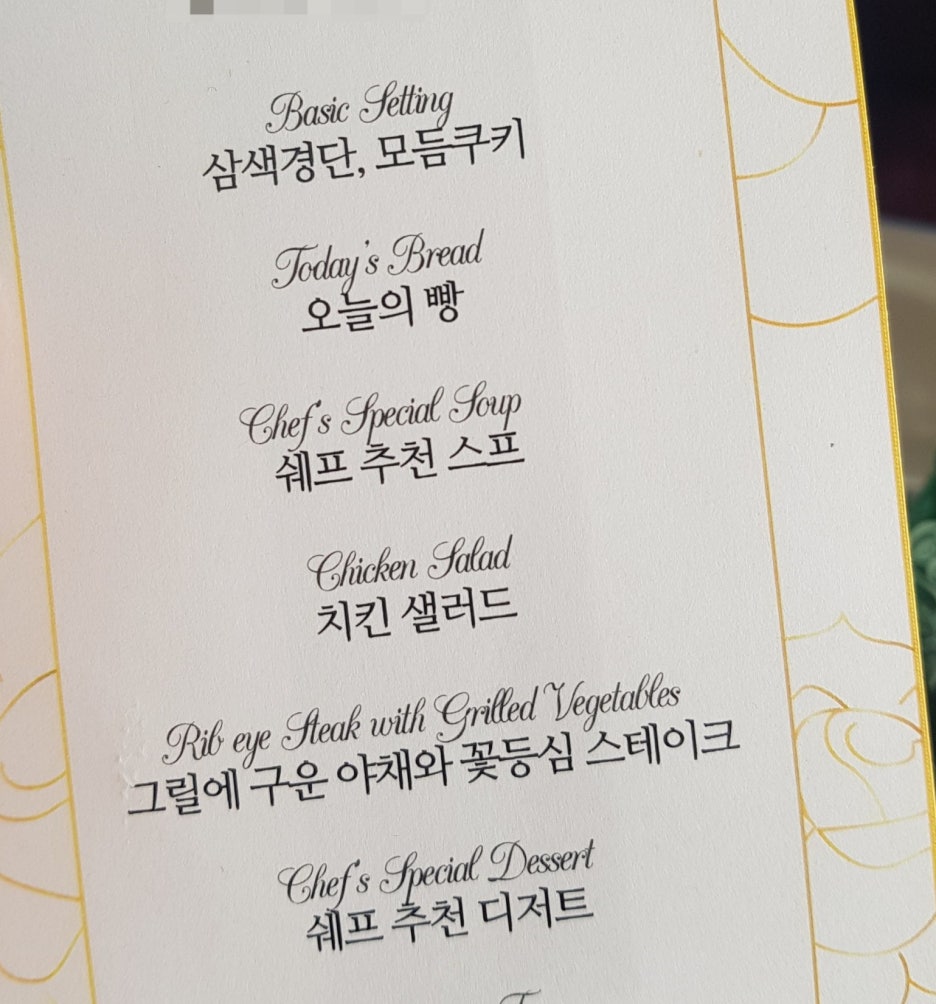 Basic Setting
삼색경단, 모듬쿠키
Today's Bread
오늘의 빵
Chef's Special Soup
쉐프 추천 스프
Chicken Salad
치킨 샐러드
Rib eye Steak with Grilled Vegetables
그릴에 구운 야채와 꽃등심 스테이크
Chef's Special Dessert
쉐프 추천 디저트